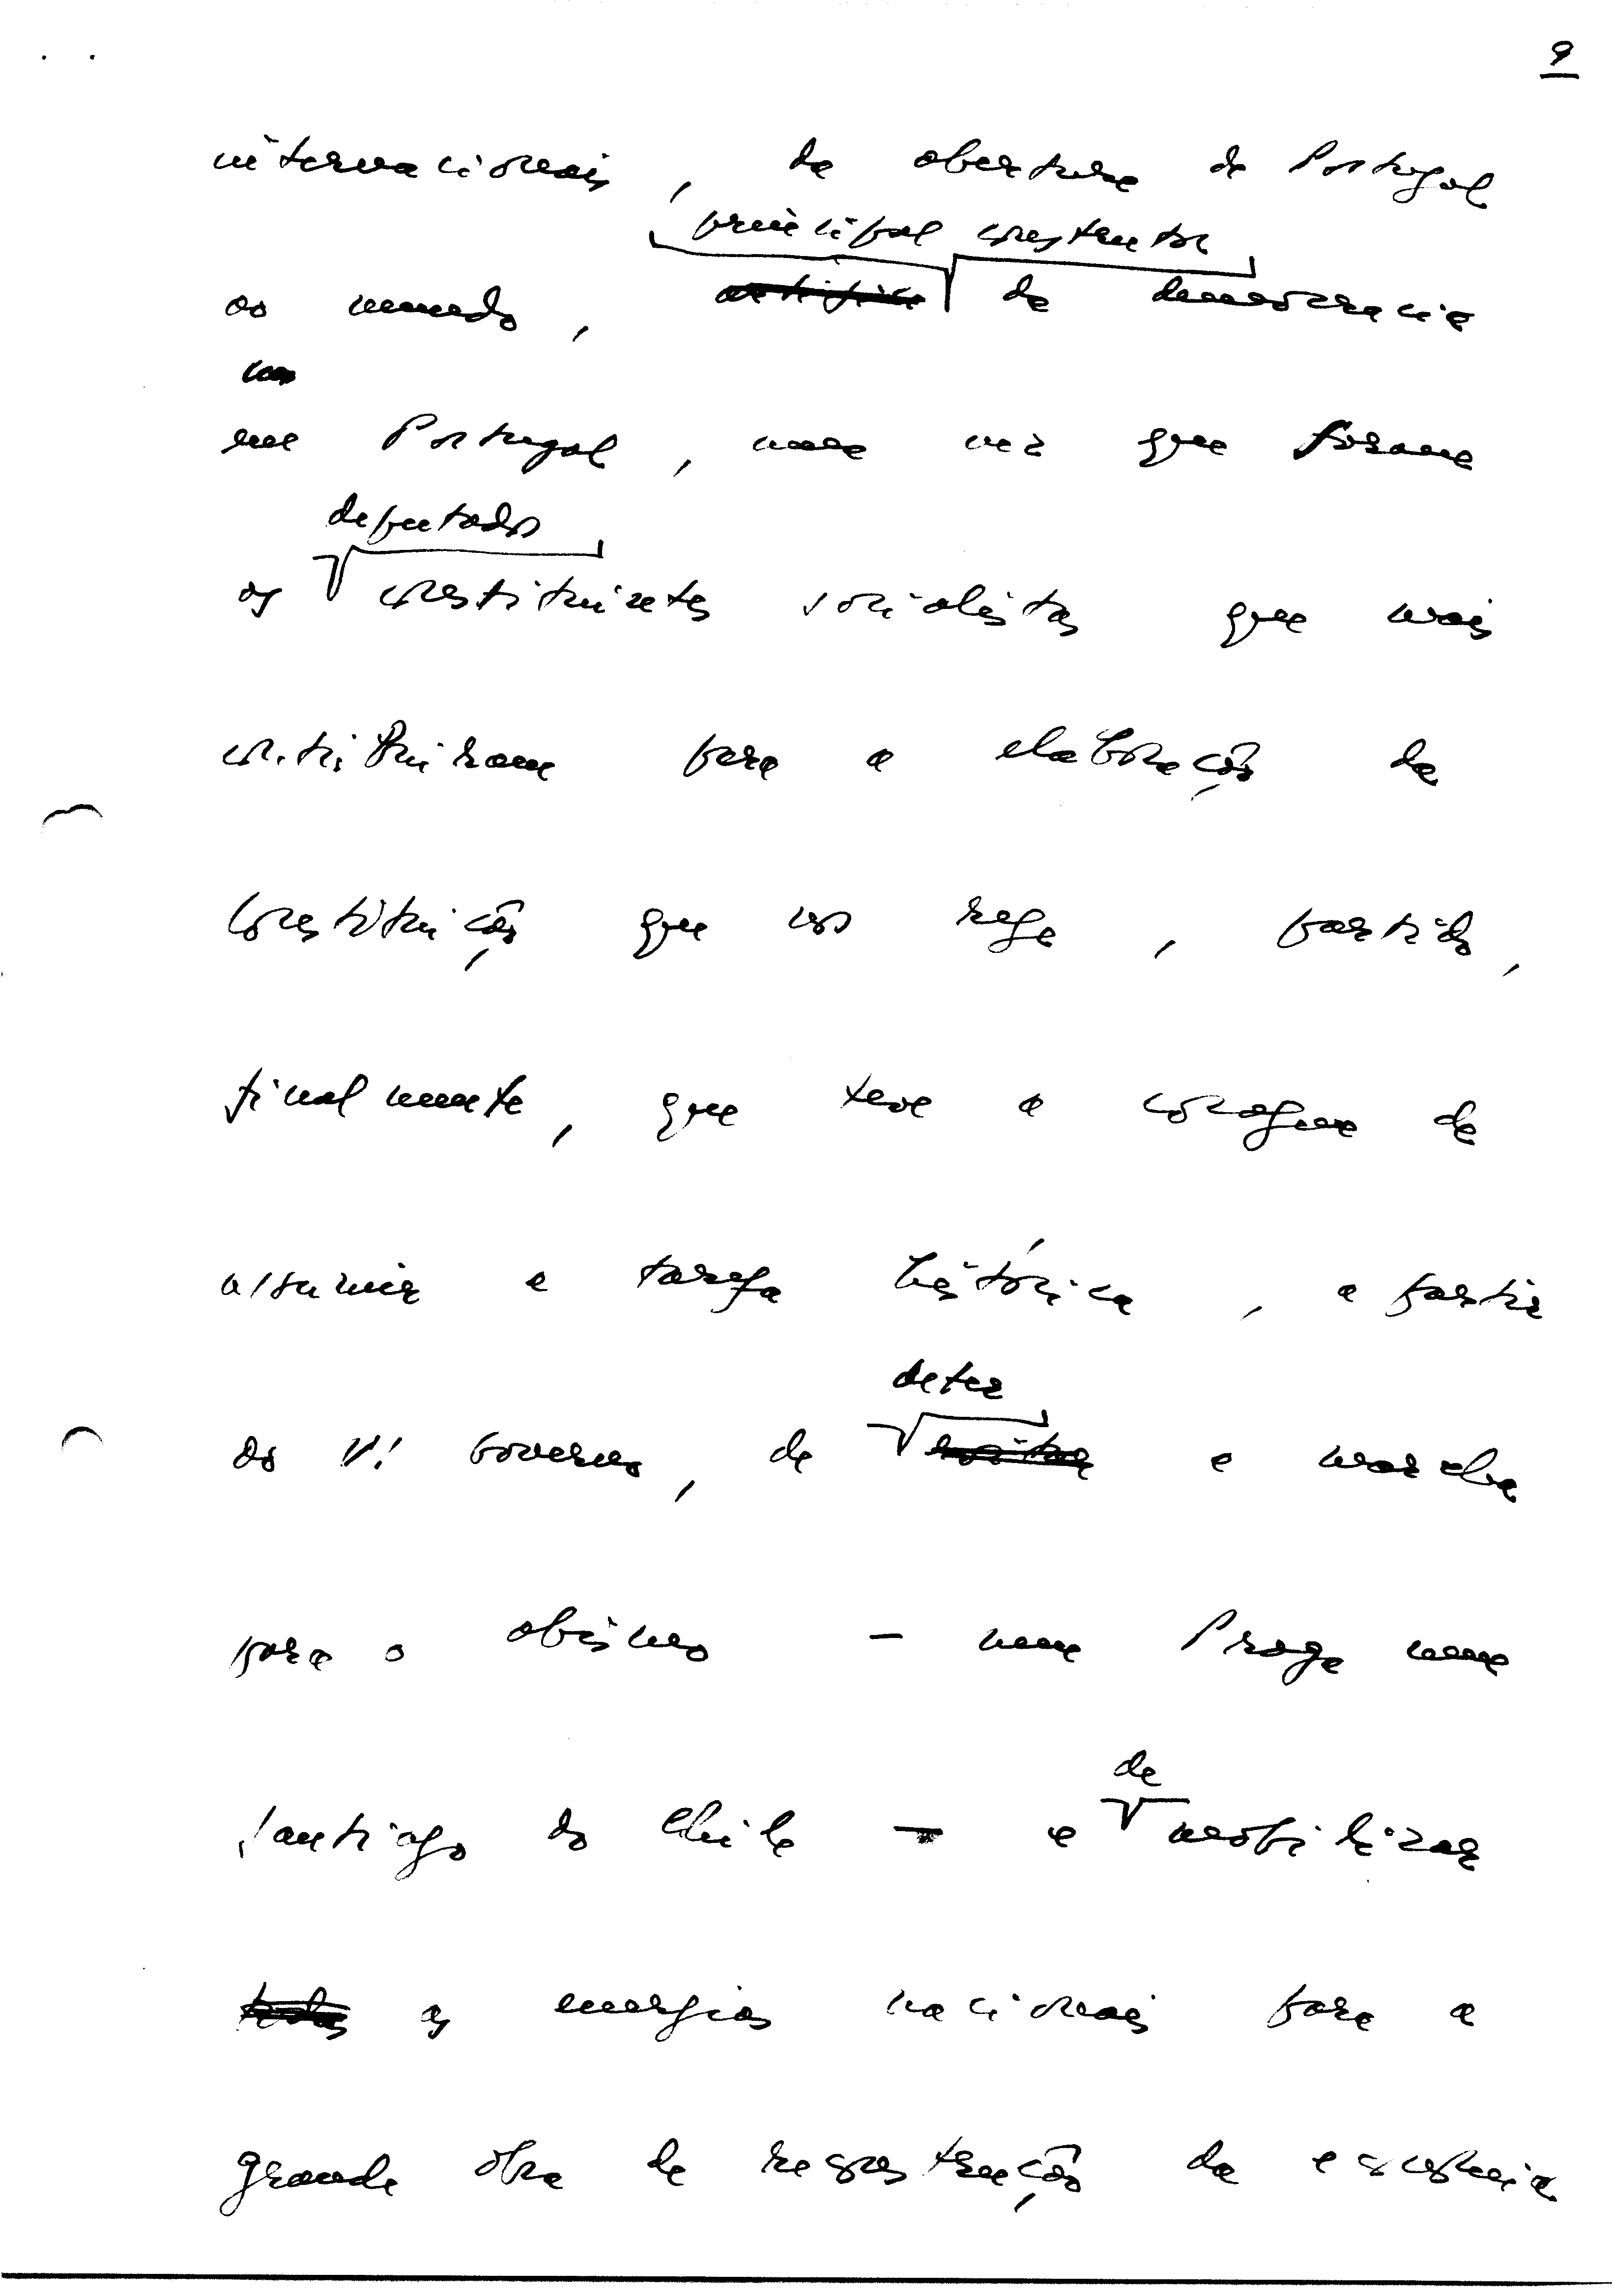 9
internacionais, da abertura de Portugal
principal construtor
ao mundo, artífice da democracia
em Portugal, uma vez que foram
deputados
os constituintes socialistas que mais
contribuiram para a elaboração da
Constituição que nos rege, partido,
finalmente, que teve a coragem de
assumir a tarefa histórica, a partir
deter
do VI Governo, de evitar a marcha
para o abismo - uma Praga uma
de
Santiago do Chile - e mobilizar
todas as energias nacionais para a
grande obra de reconstrução da economia